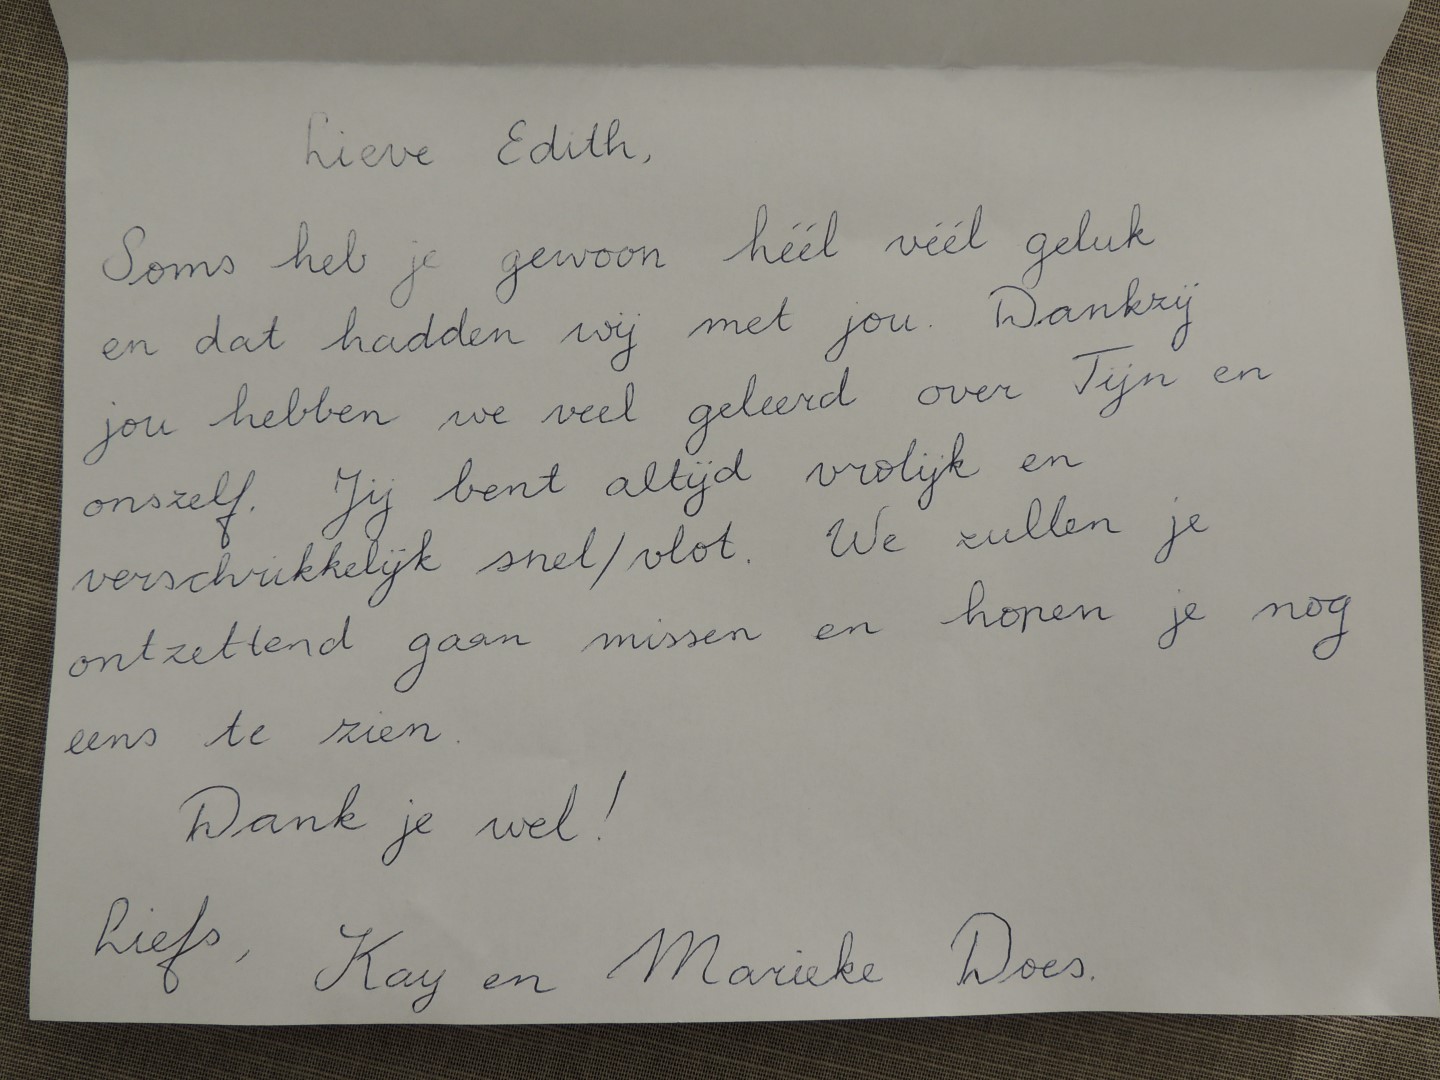 Lieve Edith,
Soms heb je gewoon héél véél geluk
en dat hadden wij met jou. Dankzij
jou hebben we veel geleerd over Tijn en
onszelf. Jij bent altijd vrolijk en
verschrikkelijk snel/vlot. We zullen je
ontzettend gaan missen en hopen je nog
eens te zien.
Dank je wel!
Liefs, Kay en Marieke Does.